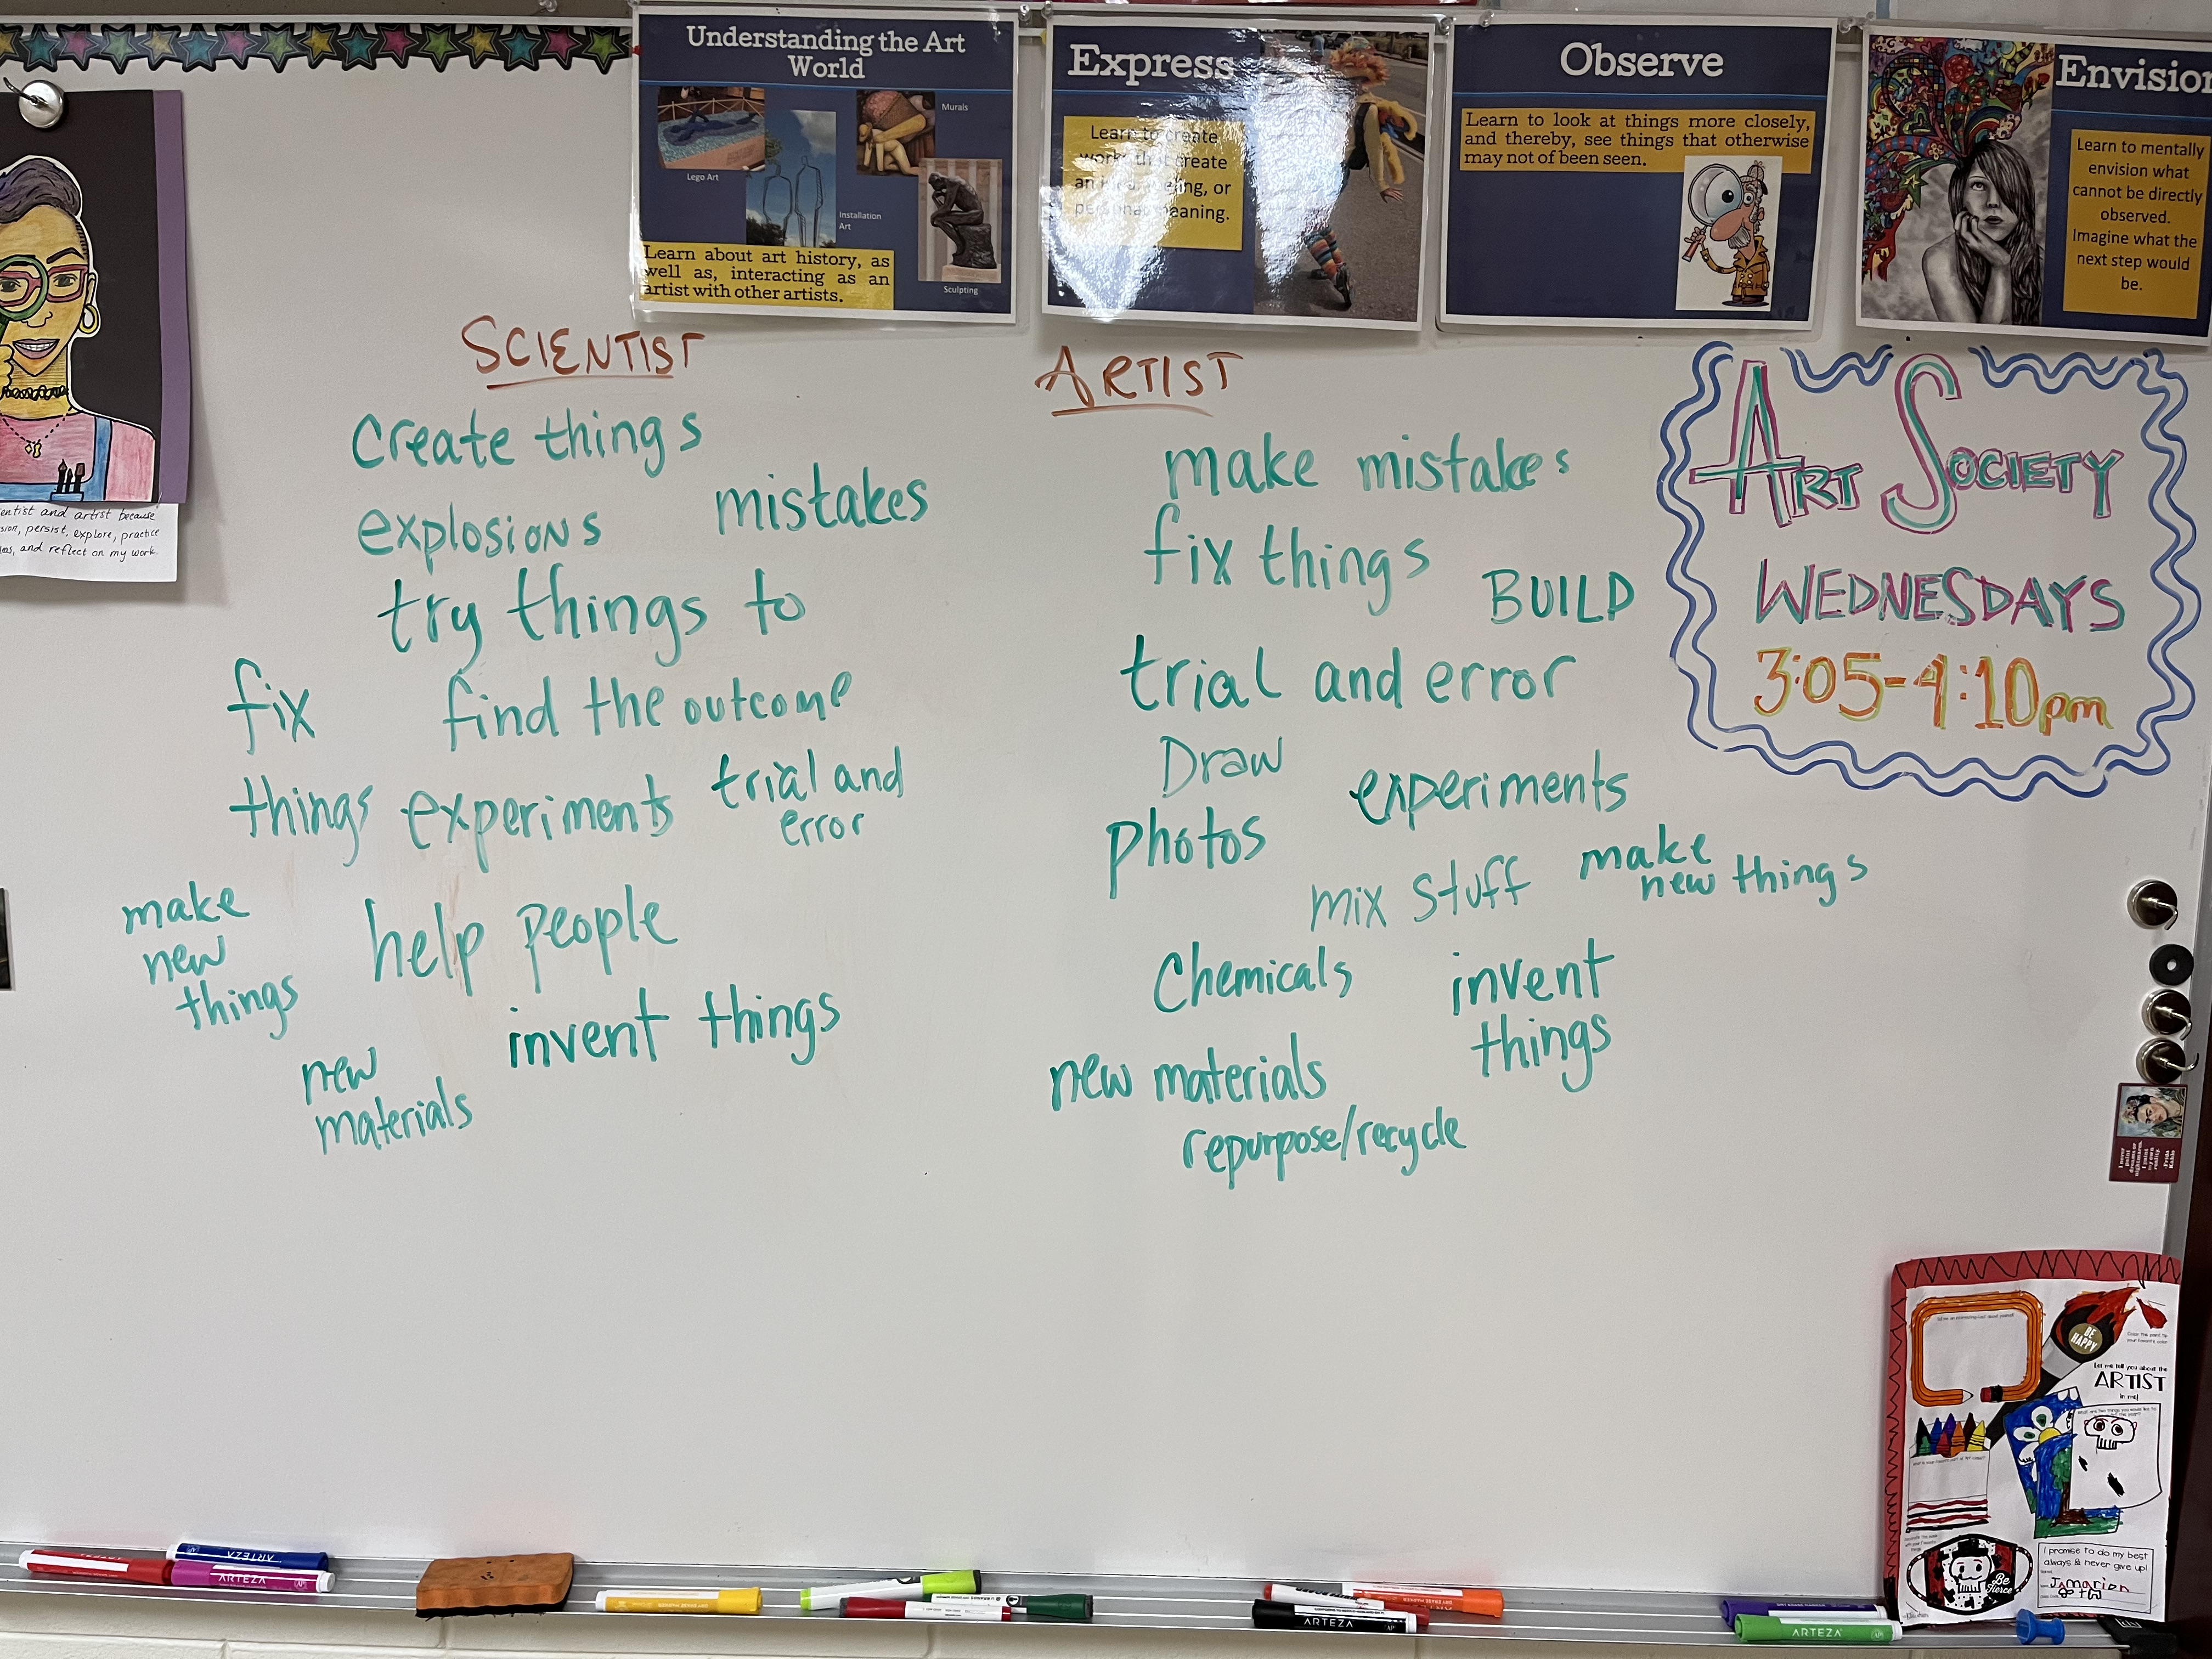 Understanding the Art
World
Murals
Lego Art
Installation
Art
Sculpting
Learn about art history, as
well as, interacting as an
artist with other artists.
Express
Learn to create
works that create
an idea, feeling, or
personal meaning.
Observe
Learn to look at things more closely,
and thereby, see things that otherwise
may not of been seen.
Envision
Learn to mentally
envision what
cannot be directly
observed.
Imagine what the
next step would
be.
entist and artist because
sion, persist, explore, practice
and reflect on my work
SCIENTIST
create things
explosions
mistakes
try things to
fix
find the outcome
things
experiments
trial and
error
make
new
things
help people
invent things
new
materials
ARTIST
make mistakes
fix things
BUILD
trial and error
Draw
experiments
photos
mix stuff
make
new things
Chemicals
invent
things
new materials
repurpose/recycle
ART SOCIETY
WEDNESDAYS
3:05-4:10pm
I never
paint
dreams or
nightmares.
I paint
my own
reality.
-Frida
Kahlo
BE
HAPPY
Color the paint tip
your favorite color
Let me tell you about the
ARTIST
in me!
Be
Fierce
I promise to do my best
always & never give up!
Jamarion
ARTEZA
ARTEZA
ARTEZA
ARTEZA